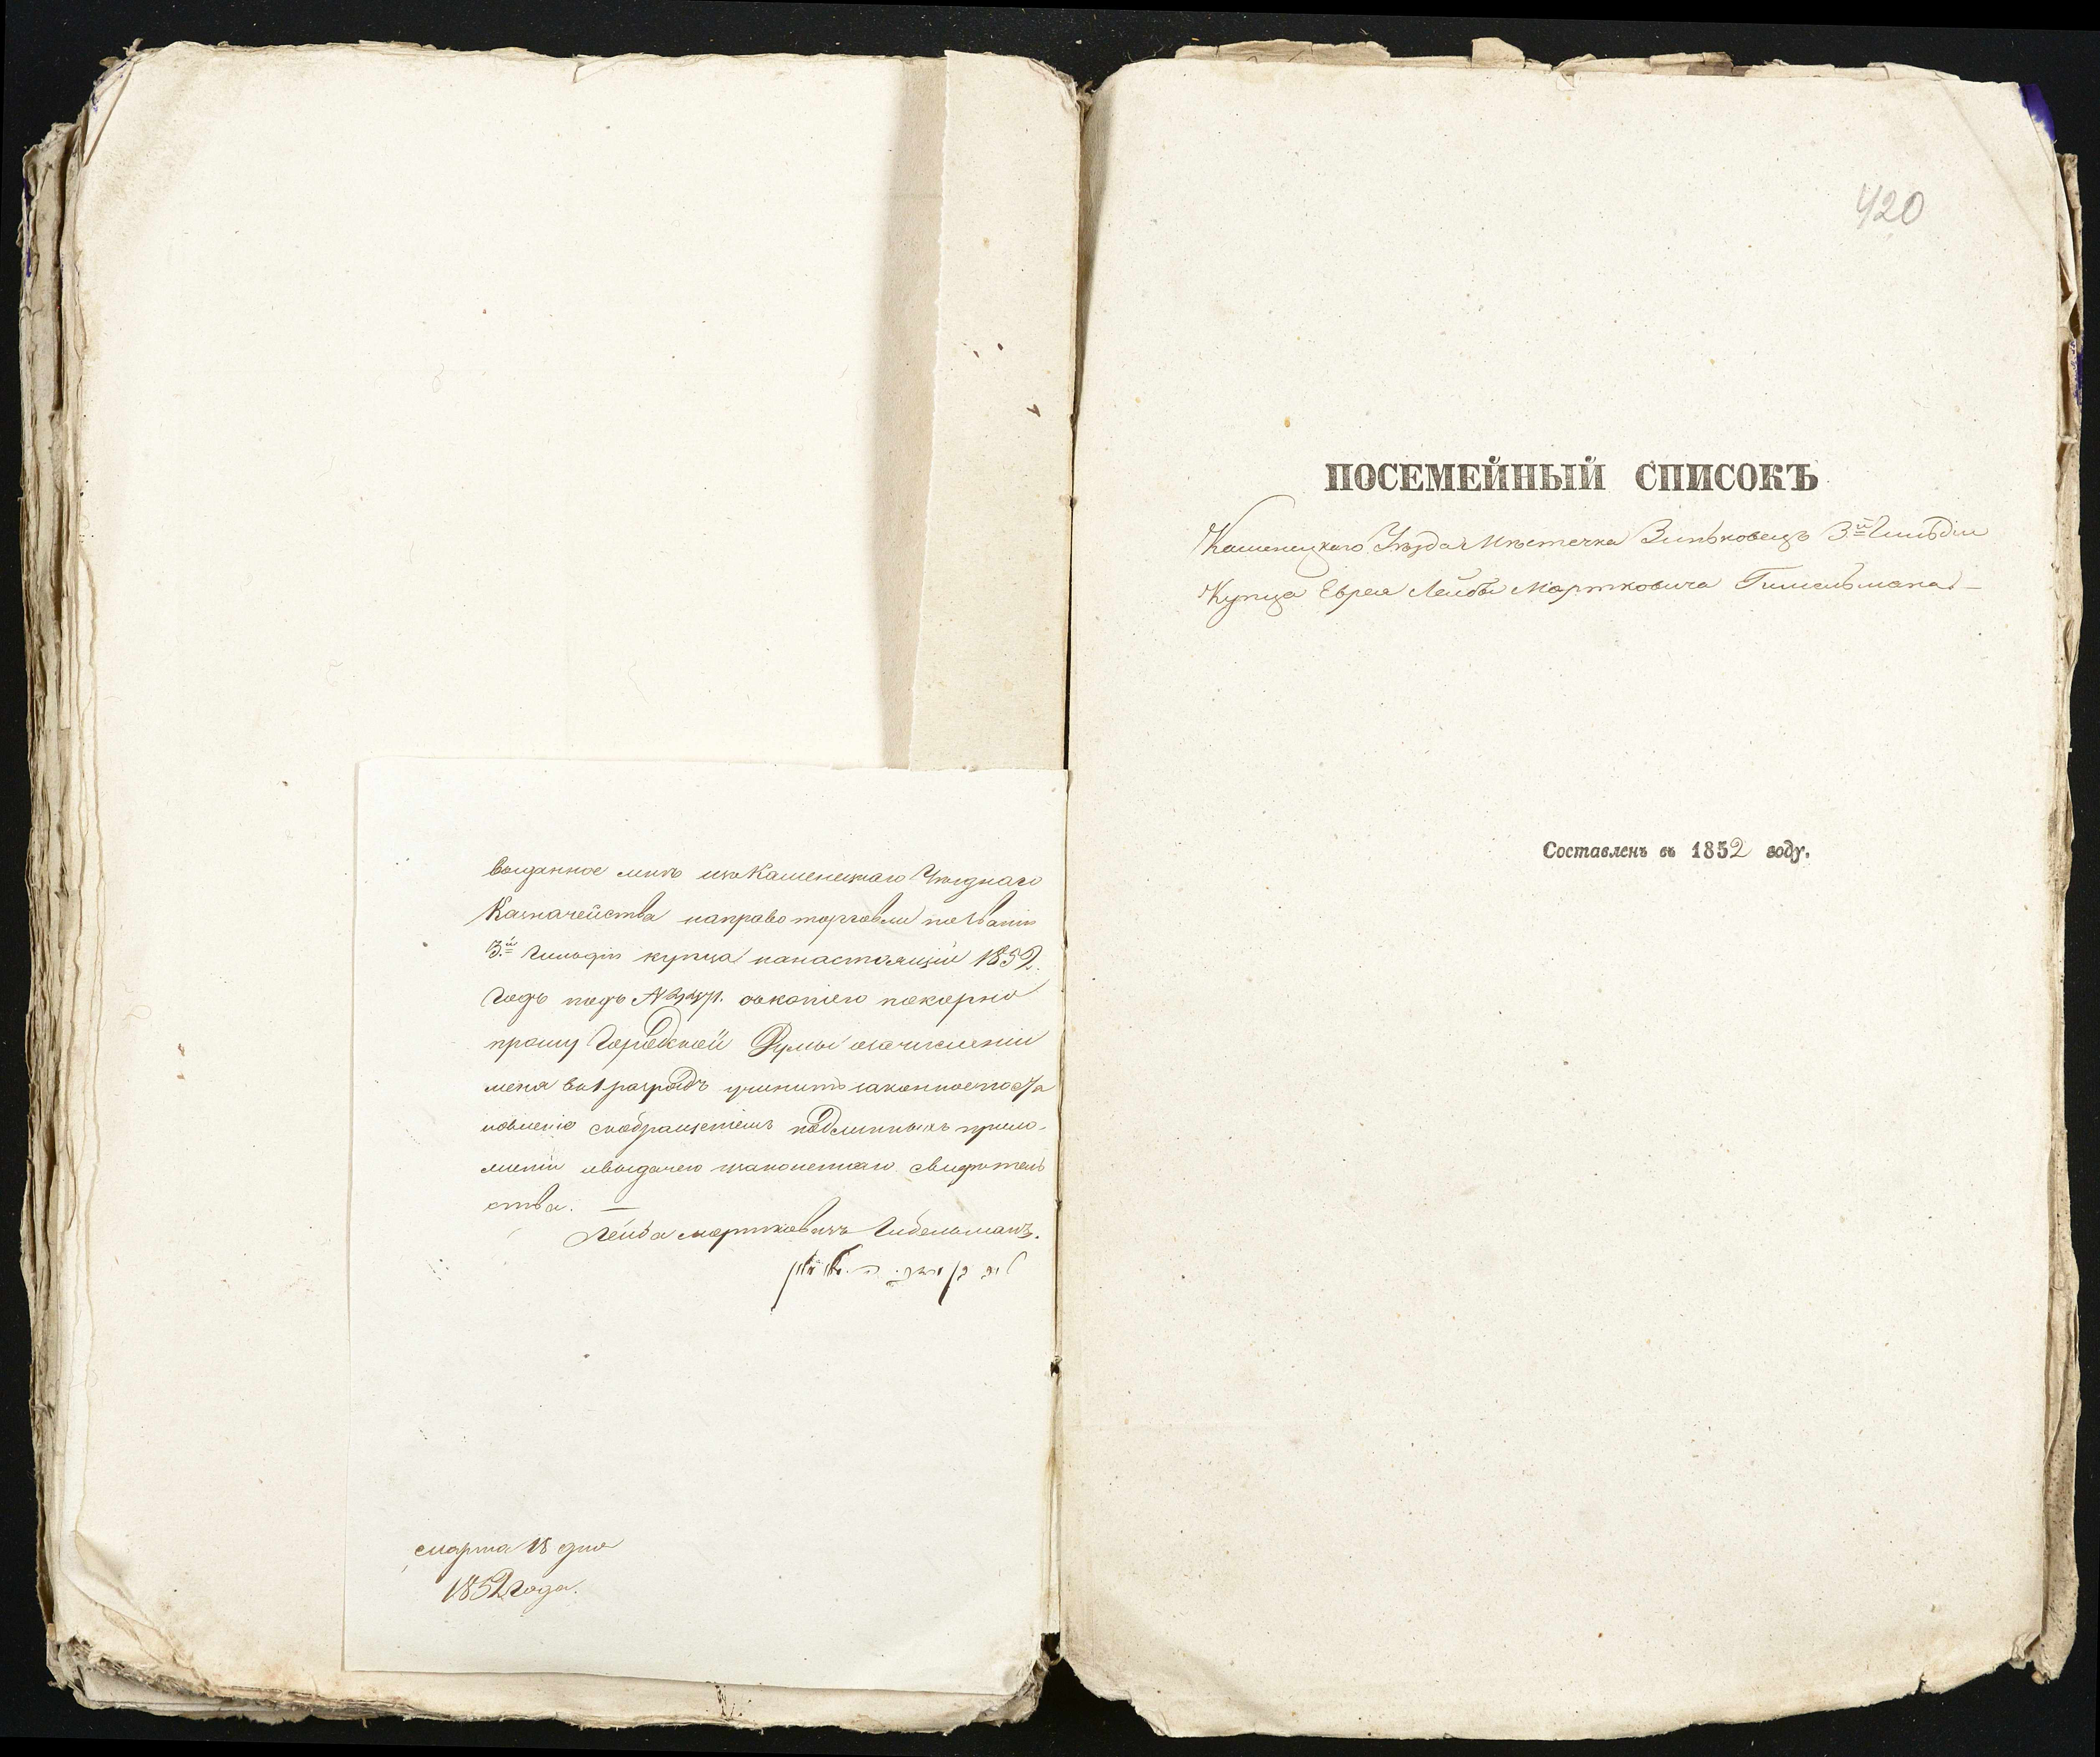 выданное мнѣ изъ Каменецкаго Уѣзднаго
Казначейства направо торговли по званію
3.й гильдіи купца на настоящій 1852.
годъ подъ № съ копіею покорно
прошу Городской Думы о зачисленіи
меня въ 1 разрядъ учинить законное поста
новленіе съ обращеніемъ подлинныхъ прило-
женіи и выдачею узаконеннаго свидѣтель
ства. —
Лейба Мортковичъ Гибельманъ.
Марта 18 дня
1852 года.
420
ПОСЕМЕЙНЫЙ СПИСОКЪ
Каменецкаго Уѣзда Мѣстечка Зиньковецъ 3.й Гильдіи
Купца Еврея Лейбы Мортковича —
Составленъ въ 1852 году.